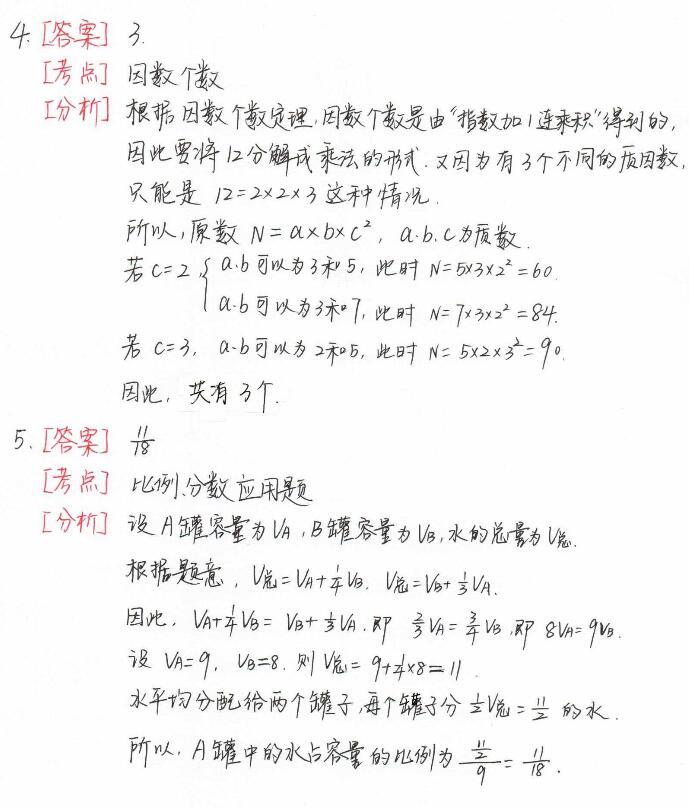 4. [答案] 3.
[考点] 因数个数
[分析] 根据因数个数定理,因数个数是由“指数加1连乘积”得到的,
因此要将12分解成乘法的形式.又因为有3个不同的质因数,
只能是 12=2×2×3 这种情况.
所以,原数 N=a×b×c², a.b.c为质数.
若c=2, { a.b可以为3和5, 此时 N=5×3×2²=60.
a.b可以为3和7, 此时 N=7×3×2²=84.
若 c=3, a.b可以为2和5, 此时 N=5×2×3²=90.
因此, 共有3个.
5. [答案] 11/18
[考点] 比例、分数应用题
[分析] 设A罐容量为V_A,B罐容量为V_B,水的总量为V总.
根据题意, V总=V_A+1/4V_B. V总=V_B+1/3V_A.
因此, V_A+1/4V_B=V_B+1/3V_A.即 2/3V_A=3/4V_B,即 8V_A=9V_B.
设 V_A=9, V_B=8. 则V总=9+1/4×8=11.
水平均分配给两个罐子,每个罐子分1/2V总=11/2的水.
所以, A罐中的水占容量的比例为 (11/2)/9=11/18.